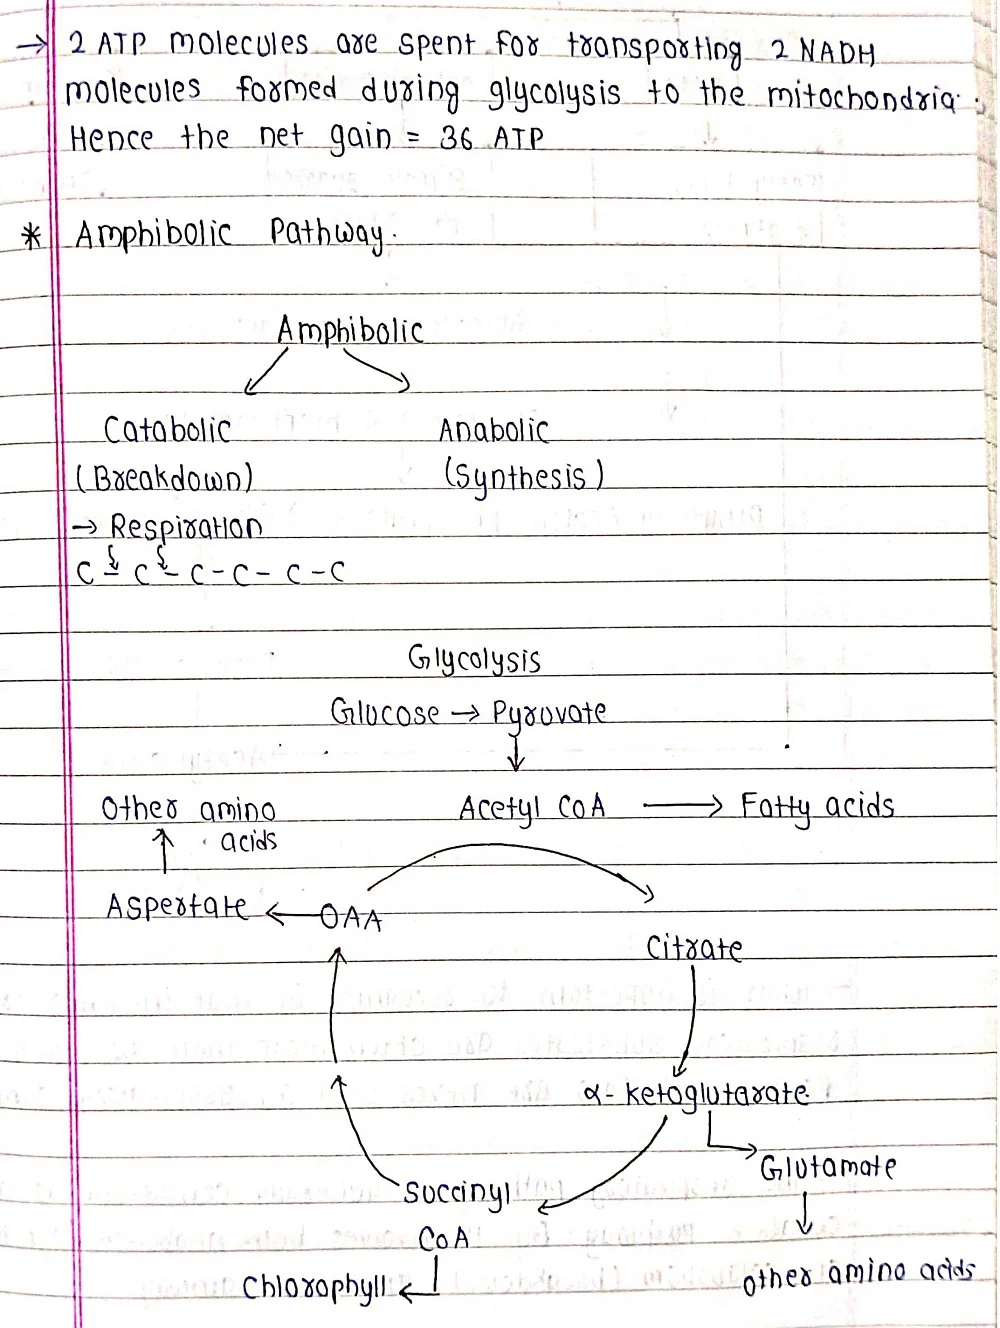 → 2 ATP molecules are spent for transporting 2 NADH
molecules formed during glycolysis to the mitochondria.
Hence the net gain = 36 ATP
* Amphibolic Pathway.
Amphibolic
Catabolic Anabolic
(Breakdown) (Synthesis)
→ Respiration
C - C - C - C - C - C
Glycolysis
Glucose → Pyruvate
Other amino Acetyl CoA → Fatty acids
acids
Aspertate ← OAA
Citrate
α- ketoglutarate
Glutamate
Succinyl
CoA
Chlorophyll ← other amino acids